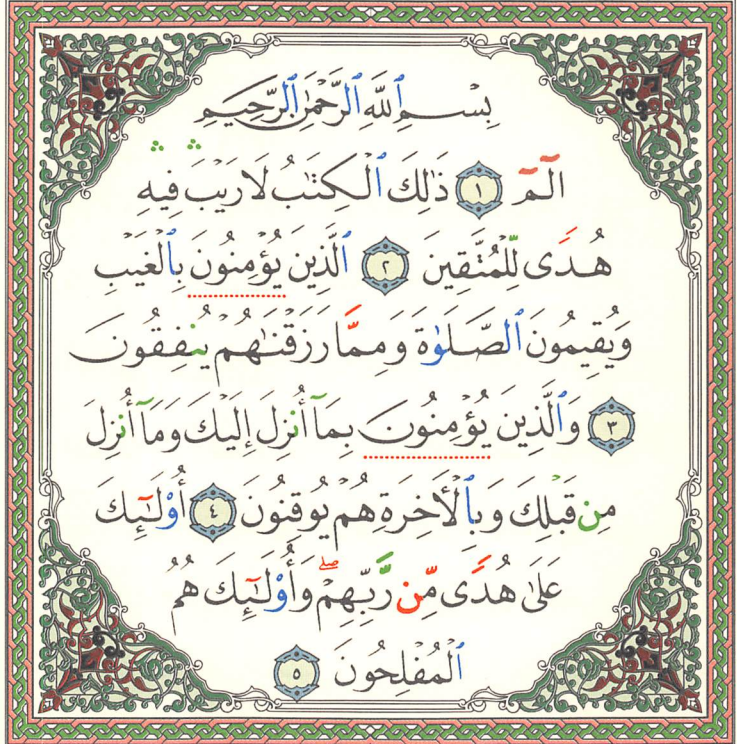 بِسْمِ ٱللَّهِ ٱلرَّحْمَٰنِ ٱلرَّحِيمِ
الٓمٓ ١ ذَٰلِكَ ٱلْكِتَٰبُ لَا رَيْبَ ۛ فِيهِ ۛ
هُدًى لِّلْمُتَّقِينَ ٢ ٱلَّذِينَ يُؤْمِنُونَ بِٱلْغَيْبِ
وَيُقِيمُونَ ٱلصَّلَوٰةَ وَمِمَّا رَزَقْنَٰهُمْ يُنفِقُونَ
٣ وَٱلَّذِينَ يُؤْمِنُونَ بِمَآ أُنزِلَ إِلَيْكَ وَمَآ أُنزِلَ
مِن قَبْلِكَ وَبِٱلْأَخِرَةِ هُمْ يُوقِنُونَ ٤ أُو۟لَٰٓئِكَ
عَلَىٰ هُدًى مِّن رَّبِّهِمْ ۖ وَأُو۟لَٰٓئِكَ هُمُ
ٱلْمُفْلِحُونَ ٥